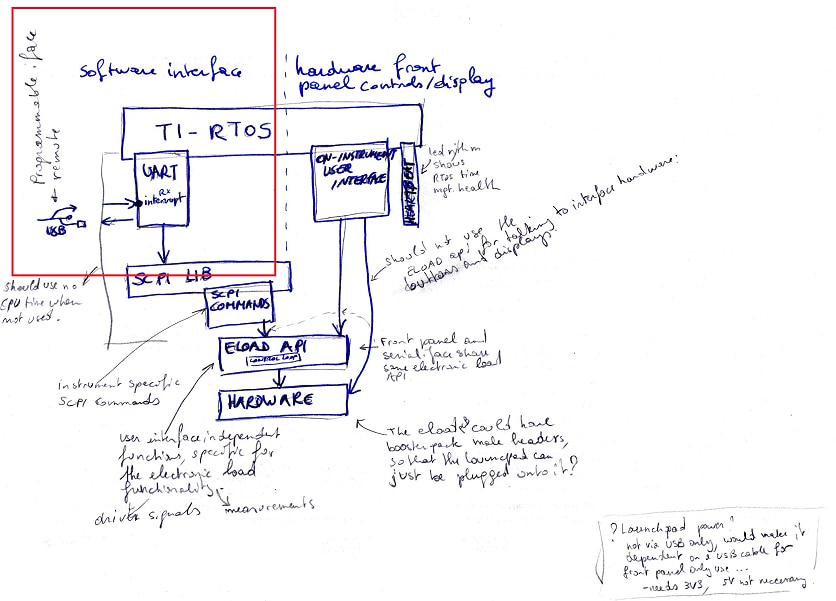 Software interface
hardware front
panel controls/display
Programmable iface
remote
TI-RTOS
UART
Rx
interrupt
USB
ON-INSTRUMENT
USER
INTERFACE
HEARTBEAT
led
shows
RTOS time
mgt. health
should not use the
ELOAD api for talking to interface hardware:
buttons and displays.
SCPI LIB
should use no
CPU time when
not used.
SCPI
COMMANDS
ELOAD API
CONTROL LOOP
Front panel and
serial iface share
same electronic load
API
instrument specific
SCPI commands
HARDWARE
user interface independent
functions, specific for
the electronic load
functionality.
driver signals
measurements
The eload could have
boosterpack male headers,
so that the launchpad can
just be plugged onto it?
? Launchpad power
not via USB only, would make it
dependent on a USB cable for
front panel only use ...
- needs 3V3, 5V not necessary.